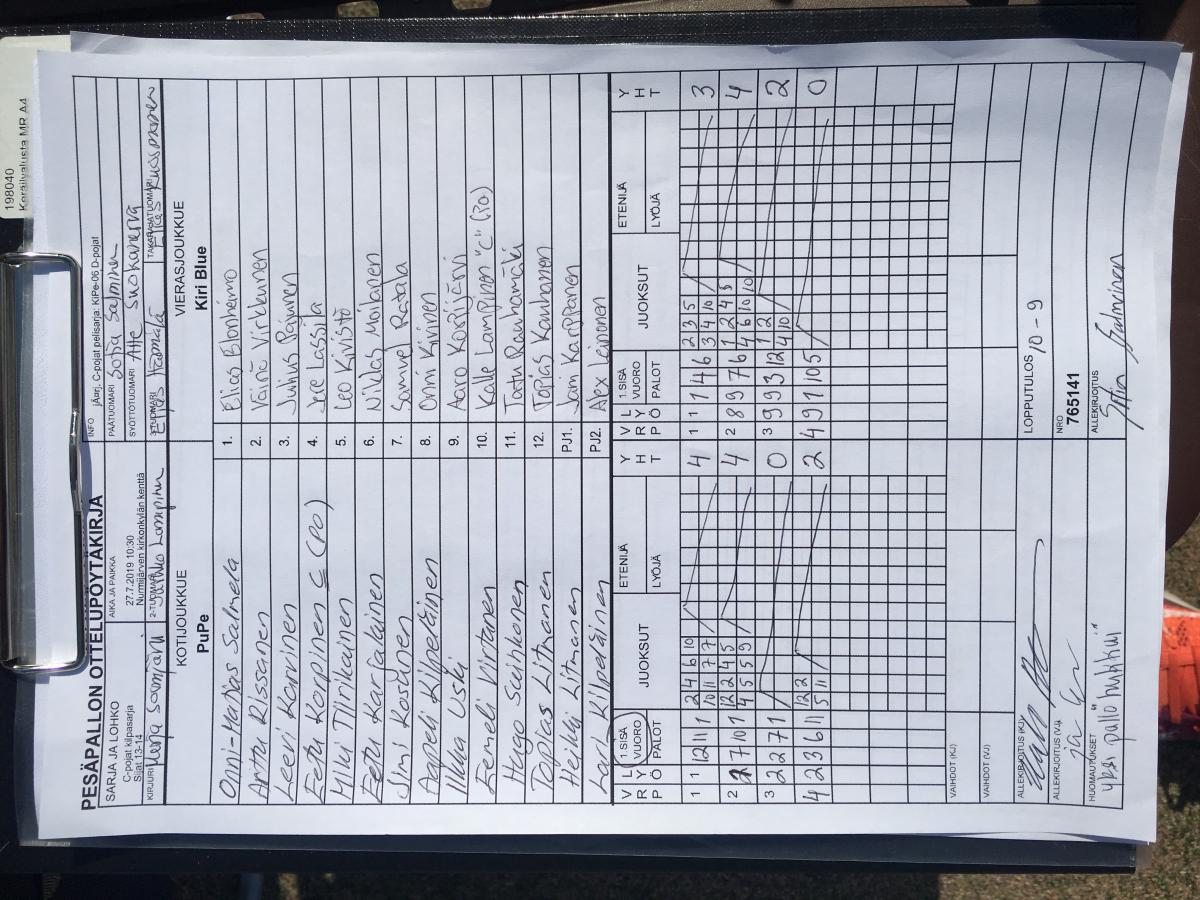 198040
Keräilyalusta MR A4
PESÄPALLON OTTELUPÖYTÄKIRJA
SARJA JA LOHKO
C-pojat kilpasarja
Sijat 13-14
AIKA JA PAIKKA
27.7.2019 10:30
Nurmijärven kirkonkylän kenttä
INFO jÄorj. C-pojat pelisarja: KiPe-06 D-pojat
PÄÄTUOMARI Sofia Salminen
SYÖTTÖTUOMARI Atte Suokanerva
KIRJURI
2-TUOMARI
3-TUOMARI
TAKARAJATUOMARI
KOTIJOUKKUE
PuPe
VIERASJOUKKUE
Kiri Blue
Onni-Matias Salmela 1. Elias Blomheimo
Arttu Rissanen 2. Väinö Virkkunen
Leevi Karvinen 3. Julius Pajunen
Eetu Korpinen C (PO) 4. Jere Lassila
Miku Tiirikainen 5. Leo Kivistö
Eetu Karjalainen 6. Niklas Moilanen
Jimi Koskinen 7. Samuel Ratala
Aapeli Kilpeläinen 8. Onni Kivinen
Ilkka Uski 9. Aaro Kossijärvi
Eemeli Virtanen 10. Kalle Lamppinen "C" (PO)
Hugo Suihkonen 11. Taatu Rauhamäki
Topias Litmanen 12. Topias Kauhanen
Heikki Litmanen PJ1. Jami Karppanen
Lari Kilpeläinen PJ2. Alex Leinonen
V R P L Y Ö 1.SISÄ VUORO PALOT JUOKSUT ETENIJÄ LYÖJÄ Y H T V R P L Y Ö 1.SISÄ VUORO PALOT JUOKSUT ETENIJÄ LYÖJÄ Y H T
1 1 12 11 1 2 4 6 10 4 1 1 1 4 6 2 3 5 3
10 11 7 7 3 4 10
2 2 7 10 1 12 2 4 5 4 2 8 9 7 6 1 2 4 5 4
4 5 5 9 4 6 10 10
3 2 2 7 1 0 3 9 9 3 12 1 2 2
4 10
4 2 3 6 11 12 2 2 4 9 1 10 5 0
5 11
VAIHDOT (KJ)
VAIHDOT (VJ)
ALLEKIRJOITUS (KJ)
LOPPUTULOS 10 - 9
ALLEKIRJOITUS (VJ)
NRO
765141
HUOMAUTUKSET
yksi pallo hukkui
ALLEKIRJOITUS
Salminen